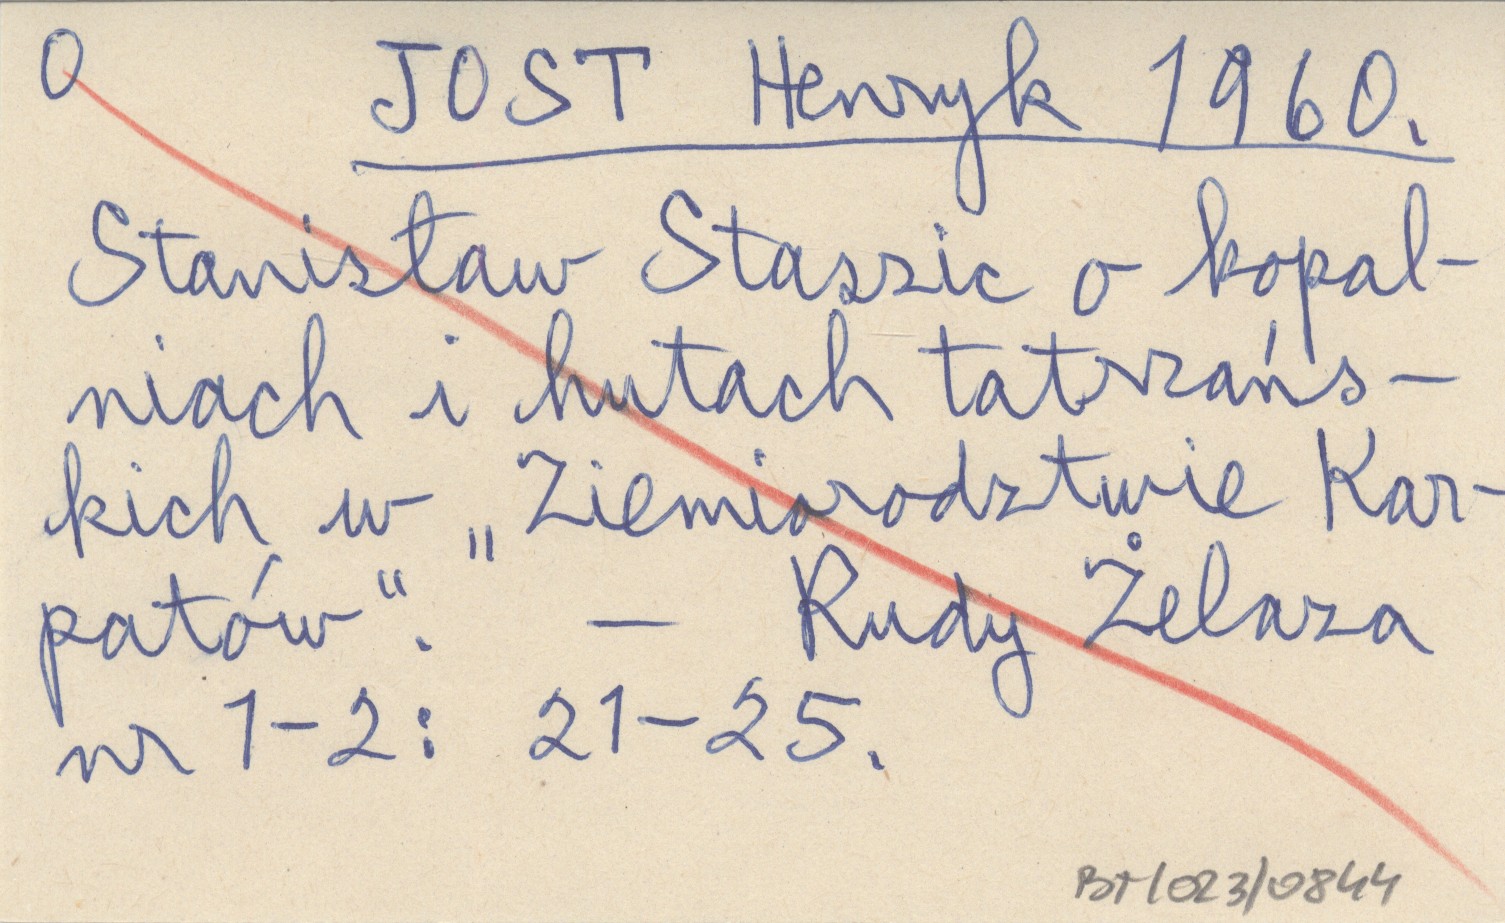 O JOST Henryk 1960.
Stanisław Staszic o kopal-
niach i hutach tatrzańs-
kich w „Ziemiorodztwie Kar-
patów“. — Rudy Żelaza
nr 1-2: 21-25.
BT/023/0844